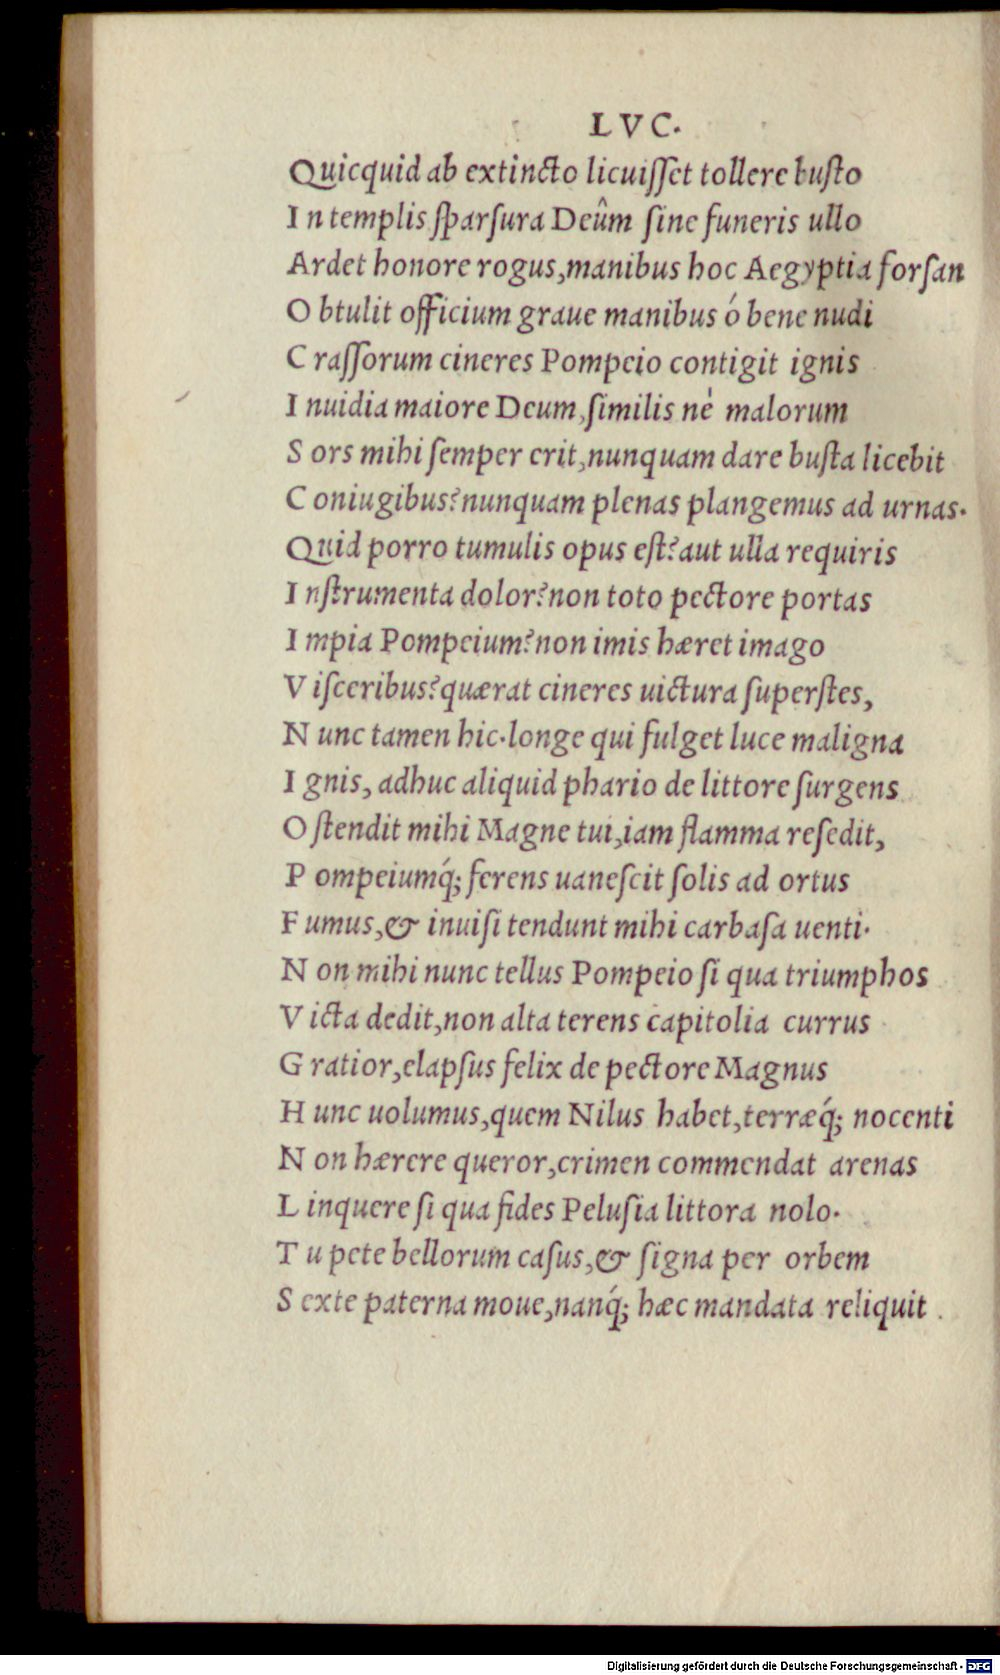 LVC.
Quicquid ab extincto licuiſſet tollere buſto
I n templis ſparſura Deûm ſine funeris ullo
Ardet honore rogus,manibus hoc Aegyptia forſan
O btulit officium graue manibus ó bene nudi
C raſſorum cineres Pompeio contigit ignis
I nuidia maiore Deum,ſimilis né malorum
S ors mihi ſemper erit,nunquam dare buſta licebit
C oniugibus?nunquam plenas plangemus ad urnas.
Quid porro tumulis opus eſt?aut ulla requiris
I nſtrumenta dolor?non toto pectore portas
I mpia Pompeium?non imis hæret imago
V iſceribus?quærat cineres uictura ſuperſtes,
N unc tamen hic.longe qui fulget luce maligna
I gnis, adhuc aliquid phario de littore ſurgens
O ſtendit mihi Magne tui,iam flamma reſedit,
P ompeiumq́; ferens uaneſcit ſolis ad ortus
F umus,& inuiſi tendunt mihi carbaſa uenti.
N on mihi nunc tellus Pompeio ſi qua triumphos
V icta dedit,non alta terens capitolia currus
G ratior,elapſus felix de pectore Magnus
H unc uolumus,quem Nilus habet,terræq́; nocenti
N on hærere queror,crimen commendat arenas
L inquere ſi qua fides Peluſia littora nolo.
T u pete bellorum caſus,& ſigna per orbem
S exte paterna moue,nanq́; hæc mandata reliquit .
Digitalisierung gefördert durch die Deutsche Forschungsgemeinschaft - DFG